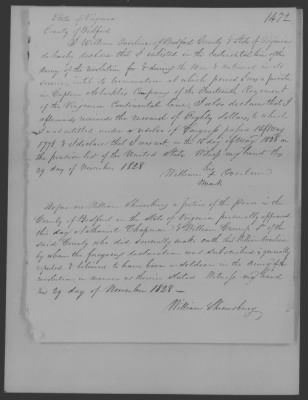 1472
State of Virginia
County of Bedford
I William Boulware of Bedford County & State of Virginia
do hereby declare that I enlisted in the Continental line of the
Army of the revolution for & during the War & continued in its
service until its termination at which period I was a private
in Captain Company of the Regiment
of the Virginia Continental line, I also declare that I
afterwards received the reward of Eighty dollars, to which
I was entitled under a resolve of Congress passed 15th May
1778 & I declare that I was not, on the 15 day of May 1828 on
the pension list of the United States Witness my hand this
29 day of November 1828
William
Mark
Before me William Shrewsbury a justice of the Peace in the
County of Bedford in the State of Virginia personally appeared
this day Nathaniel Chapman & William
said County who did severally make oath that William
by whom the foregoing declaration was subscribed is generally
reputed & believed to have been a soldier in the Army of the
revolution, in manner as therein stated Witness my hand
this 29 day of November 1828 —
William Shrewsbury